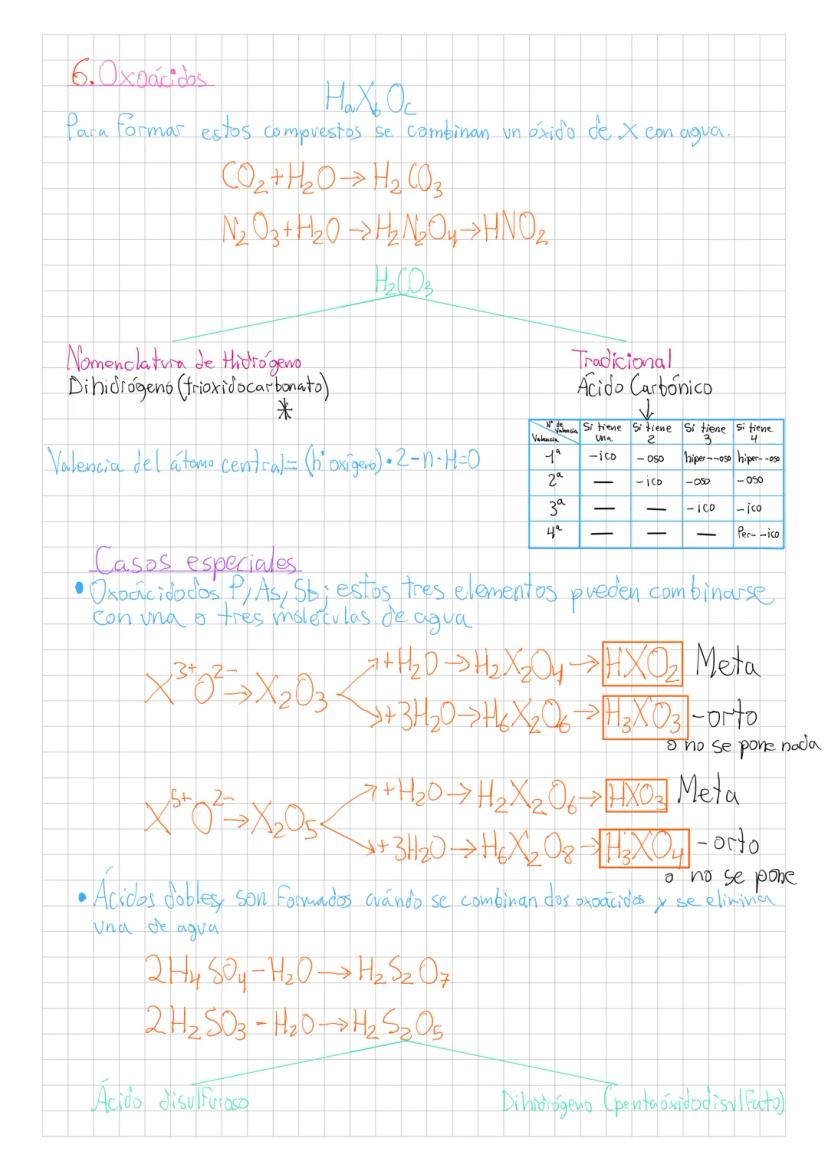 6. Oxoácidos
HaXbOc
Para formar estos compuestos se combinan un óxido de X con agua.
CO2+H2O→H2CO3
N2O3+H2O→H2N2O4→HNO2
H2CO3
Nomenclatura de Hidrógeno
Dihidrógeno (trioxidocarbonato)
*
Tradicional
Ácido Carbónico
↓
Valencia del átomo central= (nº oxígeno)·2-n·H=0
Nº de Valencia Valencia Si tiene una Si tiene 2 Si tiene 3 Si tiene 4
1ª -ico -oso hiper--oso hiper--oso
2ª — -ico -oso -oso
3ª — — -ico -ico
4ª — — — Per--ico
Casos especiales
• Oxoácidodos P, As, Sb; estos tres elementos pueden combinarse
con una o tres moléculas de agua
X3+O2-→X2O3
+H2O→H2X2O4→HXO2 Meta
+3H2O→H6X2O6→H3XO3 -orto
o no se pone nada
X5+O2-→X2O5
+H2O→H2X2O6→HXO3 Meta
+3H2O→H6X2O8→H3XO4 -orto
o no se pone
• Ácidos dobles, son formados cuándo se combinan dos oxoácidos y se elimina
una de agua
2H4SO4-H2O→H2S2O7
2H2SO3-H2O→H2S2O5
Ácido disulfuroso
Dihidrógeno (pentaóxidodisulfato)